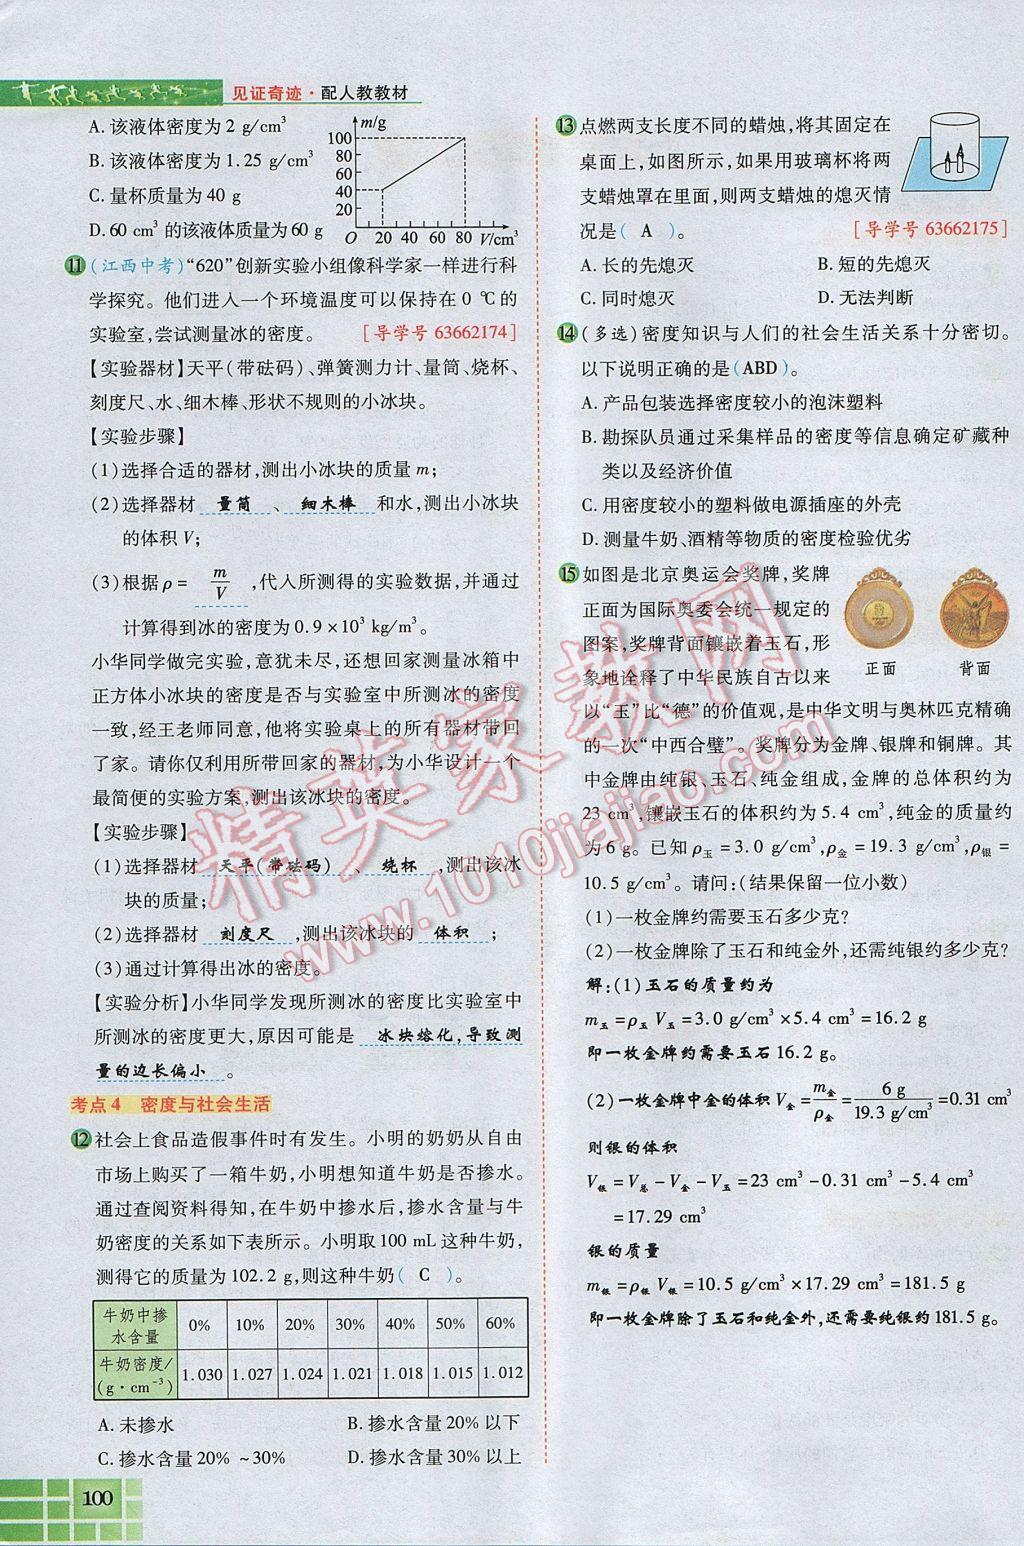 见证奇迹·配人教教材
A. 该液体密度为2 g/cm³
B. 该液体密度为1.25 g/cm³
C. 量杯质量为40 g
D. 60 cm³ 的该液体质量为60 g
m/g
100
80
60
40
20
O 20 40 60 80 V/cm³
11 (江西中考)“620”创新实验小组像科学家一样进行科
学探究。他们进入一个环境温度可以保持在 0 ℃的
实验室,尝试测量冰的密度。 [导学号 63662174]
【实验器材】天平(带砝码)、弹簧测力计、量筒、烧杯、
刻度尺、水、细木棒、形状不规则的小冰块。
【实验步骤】
(1)选择合适的器材,测出小冰块的质量 m;
(2)选择器材 量筒 、 细木棒 和水,测出小冰块
的体积 V;
(3)根据 ρ = m/V ,代入所测得的实验数据,并通过
计算得到冰的密度为0.9×10³ kg/m³。
小华同学做完实验,意犹未尽,还想回家测量冰箱中
正方体小冰块的密度是否与实验室中所测冰的密度
一致,经王老师同意,他将实验桌上的所有器材带回
了家。请你仅利用所带回家的器材,为小华设计一个
最简便的实验方案,测出该冰块的密度。
【实验步骤】
(1)选择器材 天平(带砝码) 、 烧杯 ,测出该冰
块的质量;
(2)选择器材 刻度尺 ,测出该冰块的 体积 ;
(3)通过计算得出冰的密度。
【实验分析】小华同学发现所测冰的密度比实验室中
所测冰的密度更大,原因可能是 冰块熔化,导致测
量的边长偏小 。
考点4 密度与社会生活
12 社会上食品造假事件时有发生。小明的奶奶从自由
市场上购买了一箱牛奶,小明想知道牛奶是否掺水。
通过查阅资料得知,在牛奶中掺水后,掺水含量与牛
奶密度的关系如下表所示。小明取100 mL 这种牛奶,
测得它的质量为102.2 g,则这种牛奶( C )。
牛奶中掺水含量 0% 10% 20% 30% 40% 50% 60%
牛奶密度/(g·cm⁻³) 1.030 1.027 1.024 1.021 1.018 1.015 1.012
A. 未掺水 B. 掺水含量20% 以下
C. 掺水含量20% ~30% D. 掺水含量30% 以上
100
13 点燃两支长度不同的蜡烛,将其固定在
桌面上,如图所示,如果用玻璃杯将两
支蜡烛罩在里面,则两支蜡烛的熄灭情
况是( A )。 [导学号 63662175]
A. 长的先熄灭 B. 短的先熄灭
C. 同时熄灭 D. 无法判断
14 (多选)密度知识与人们的社会生活关系十分密切。
以下说明正确的是(ABD)。
A. 产品包装选择密度较小的泡沫塑料
B. 勘探队员通过采集样品的密度等信息确定矿藏种
类以及经济价值
C. 用密度较小的塑料做电源插座的外壳
D. 测量牛奶、酒精等物质的密度检验优劣
15 如图是北京奥运会奖牌,奖牌
正面为国际奥委会统一规定的
图案,奖牌背面镶嵌着玉石,形
象地诠释了中华民族自古以来
正面 背面
以“玉”比“德”的价值观,是中华文明与奥林匹克精确
的一次“中西合璧”。奖牌分为金牌、银牌和铜牌。其
中金牌由纯银、玉石、纯金组成,金牌的总体积约为
23 cm³,镶嵌玉石的体积约为5.4 cm³,纯金的质量约
为6 g。已知ρ玉=3.0 g/cm³,ρ金=19.3 g/cm³,ρ银=
10.5 g/cm³。请问:(结果保留一位小数)
(1)一枚金牌约需要玉石多少克?
(2)一枚金牌除了玉石和纯金外,还需纯银约多少克?
解:(1)玉石的质量约为
m玉=ρ玉 V玉=3.0 g/cm³×5.4 cm³=16.2 g
即一枚金牌约需要玉石16.2 g。
(2)一枚金牌中金的体积 V金=m金/ρ金=6 g/19.3 g/cm³=0.31 cm³
则银的体积
V银=V总-V金-V玉=23 cm³-0.31 cm³-5.4 cm³
=17.29 cm³
银的质量
m银=ρ银 V银=10.5 g/cm³×17.29 cm³=181.5 g
即一枚金牌除了玉石和纯金外,还需要纯银约181.5 g。
精英家教网
www.1010jiajiao.com